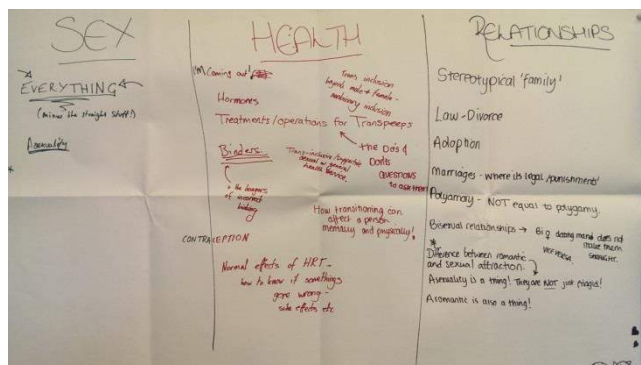 SEX
EVERYTHING
(minus the straight stuff!)
Asexuality
HEALTH
I'M Coming out!
Trans inclusion
beyond male & female -
nonbinary inclusion
Hormones
Treatments/operations for Transpeeps
the Do's &
Don'ts
QUESTIONS
to ask them
Binders
- the dangers
of incorrect
binding
Trans inclusive/supportive
sexual or general
health service.
How transitioning can
affect a person
mentally and physically!
CONTRACEPTION
Normal effects of HRT -
how to know if somethings
gone wrong -
side effects etc
RELATIONSHIPS
Stereotypical 'family'
Law - Divorce
Adoption
Marriages - where its legal/punishments!
Polyamory - NOT equal to polygamy.
Bisexual relationships → Bi ♀ dating man does not
make them
STRAIGHT.
VICE VERSA
* Difference between romantic
and sexual attraction.
Asexuality is a thing! They are NOT just frigid!
Aromantic is also a thing!